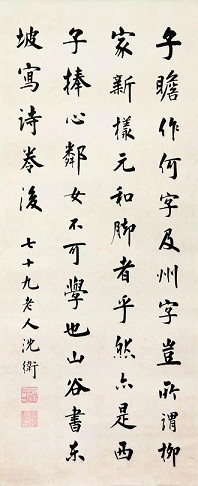 子瞻作何字及州字豈所謂柳
家新樣元和脚者乎然亦是西
子捧心鄰女不可學也山谷書东
坡寫诗卷後
七十九老人沈衛